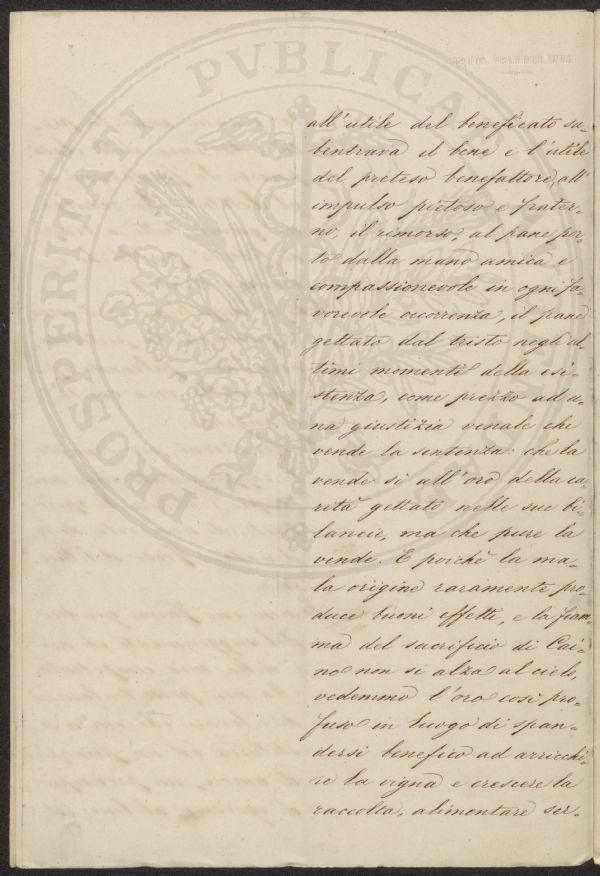 PROSPERITATI PVBLICAE
all'utile del beneficato su=
bentrava il bene e l'utile
del preteso benefattore, all'
impulso pietoso e frater=
no, il rimorso, al pane por=
to dalla mano amica e
compassionevole in ogni fa=
vorevole occorrenza, il pane
gettato dal tristo negli ul=
timi momenti della esi=
stenza, come prezzo ad u=
na giustizia venale che
vende la sentenza: che la
vende si all'oro della ca=
rità gettato nelle sue bi=
lancie, ma che pure la
vende. E poichè la ma=
la origine raramente pro=
duce buoni effetti, e la fiam=
ma del sacrificio di Cai=
no non si alza al cielo,
vedemmo l'oro così pro=
fuso in luogo di span=
dersi benefico ad arricchi=
re la vigna e crescere la
raccolta, alimentare ser=